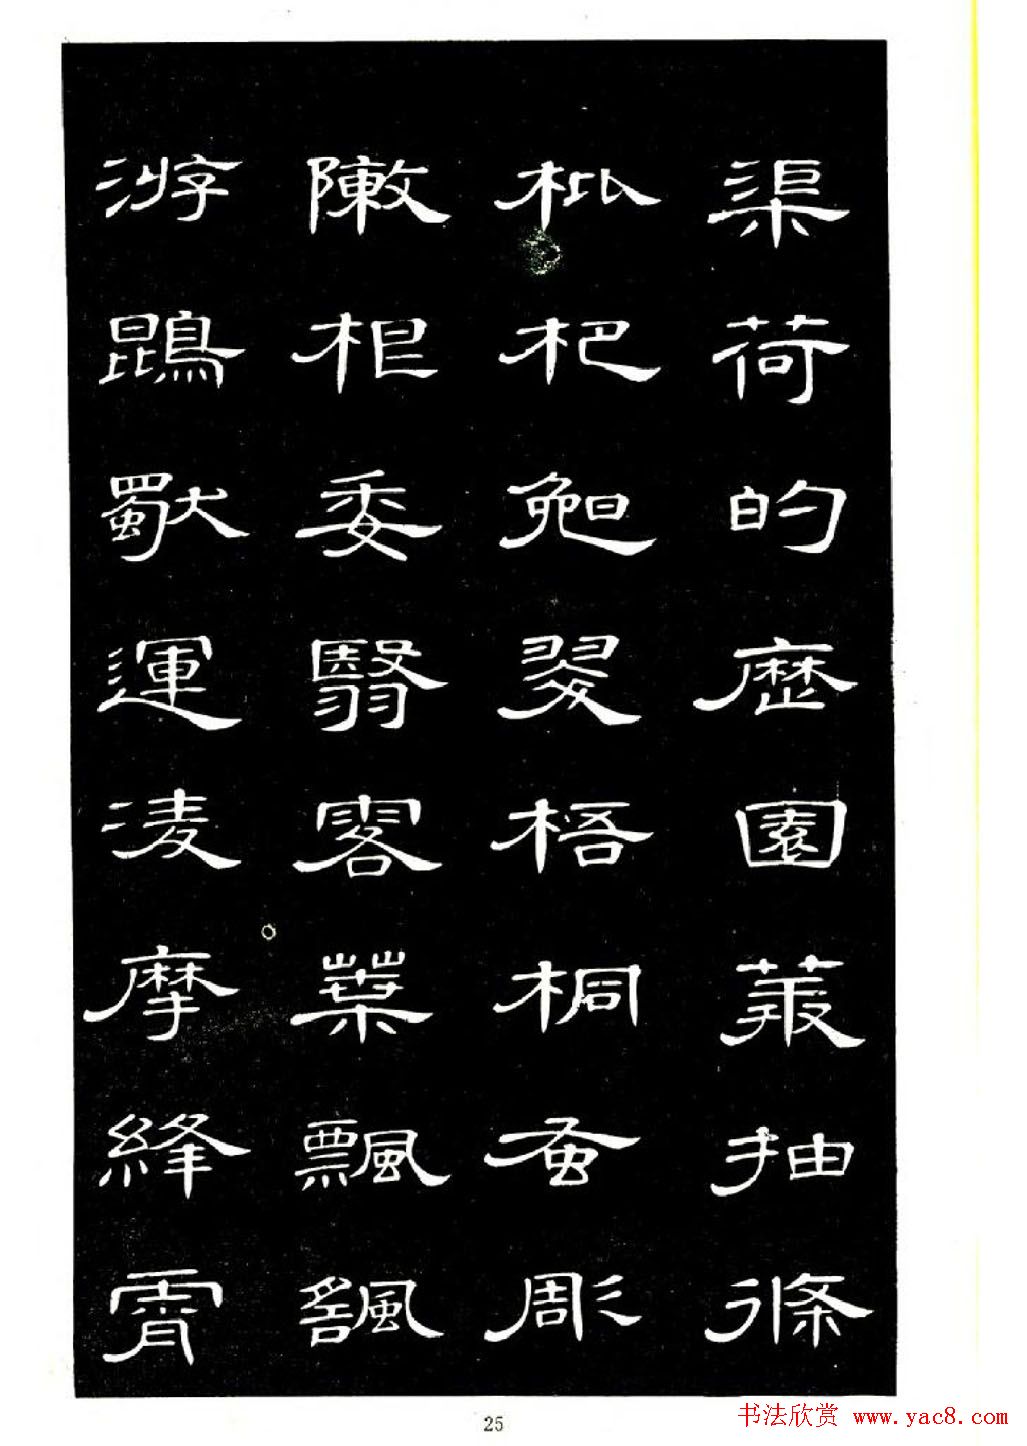 渠荷的歷園菆抽條
枇杷晩翠梧桐蚤彫
陳根委翳畧葉飄颻
游鵾獸運凌摩絳霄
25
书法欣赏 www.yac8.com